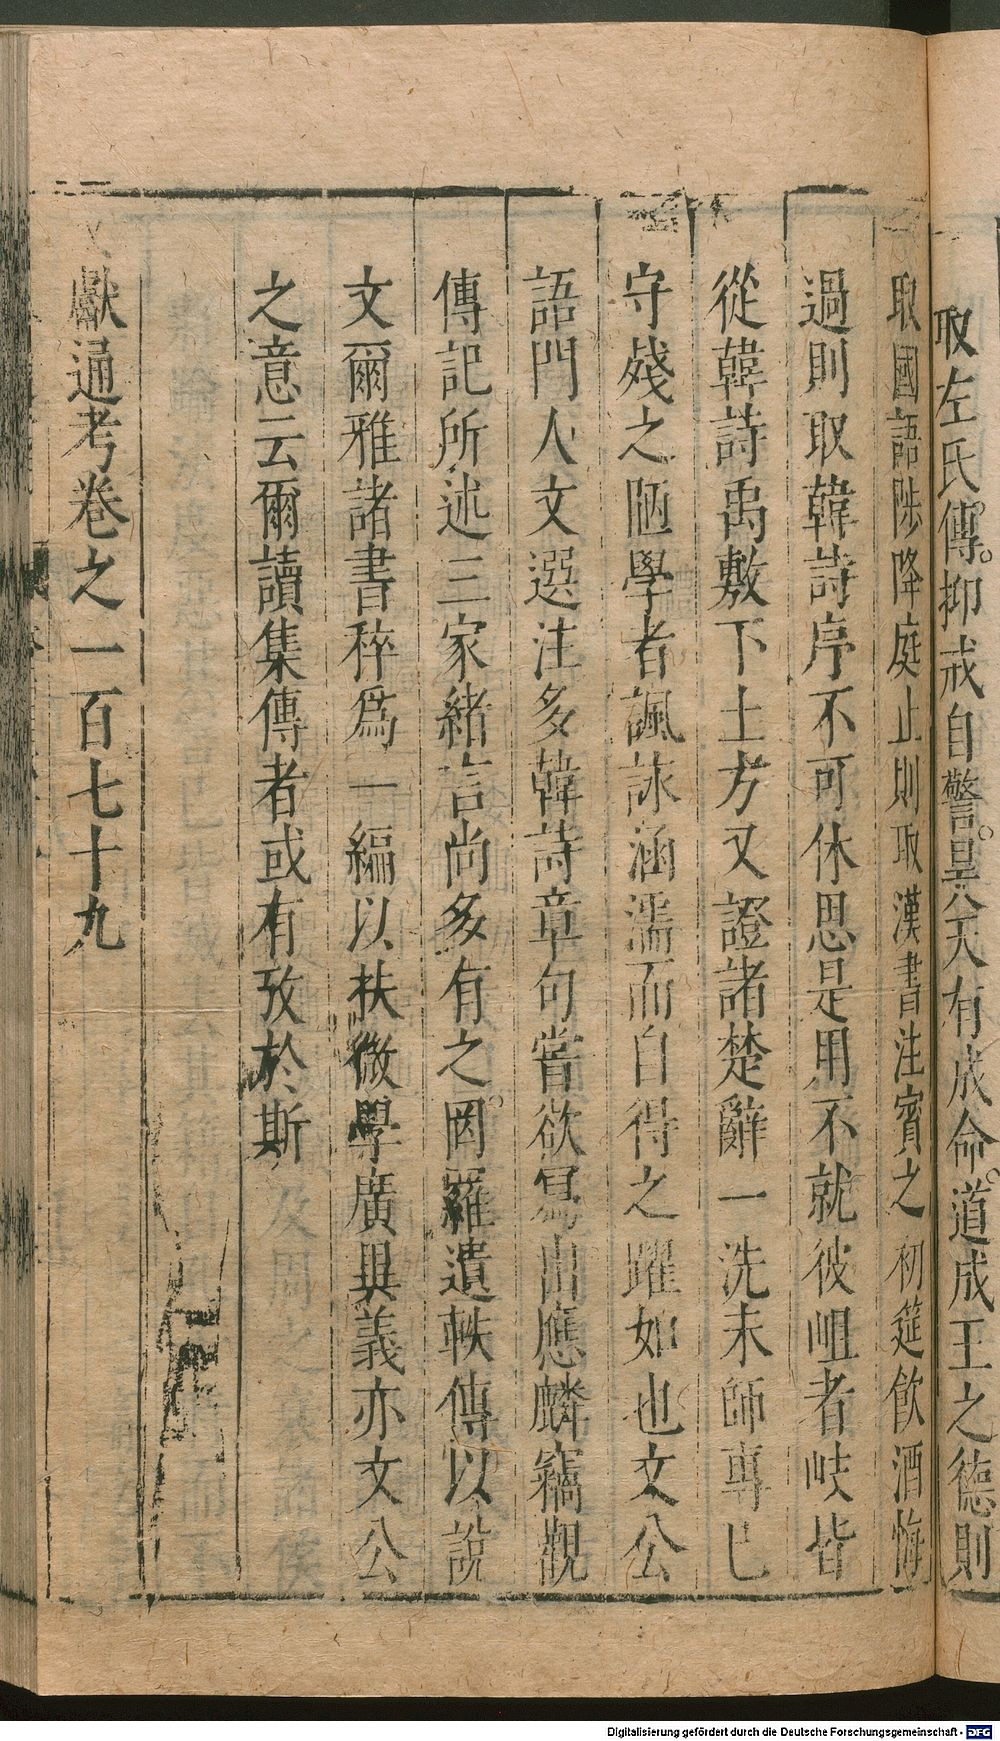 取左氏傳抑戒自警昊天有成命道成王之德則
取國語陟降庭止則取漢書注賓之初筵飲酒悔
過則取韓詩序不可休思是用不就彼岨者岐皆
從韓詩禹敷下土方又證諸楚辭一洗末師專己
守殘之陋學者諷詠涵濡而自得之躍如也文公
語門人文選注多韓詩章句嘗欲寫出應麟竊觀
傳記所述三家緒言尚多有之罔羅遺軼傳以說
文爾雅諸書稡爲一編以扶微學廣異義亦文公
之意云爾讀集傳者或有攷於斯
文獻通考卷之一百七十九
Digitalisierung gefördert durch die Deutsche Forschungsgemeinschaft - DFG